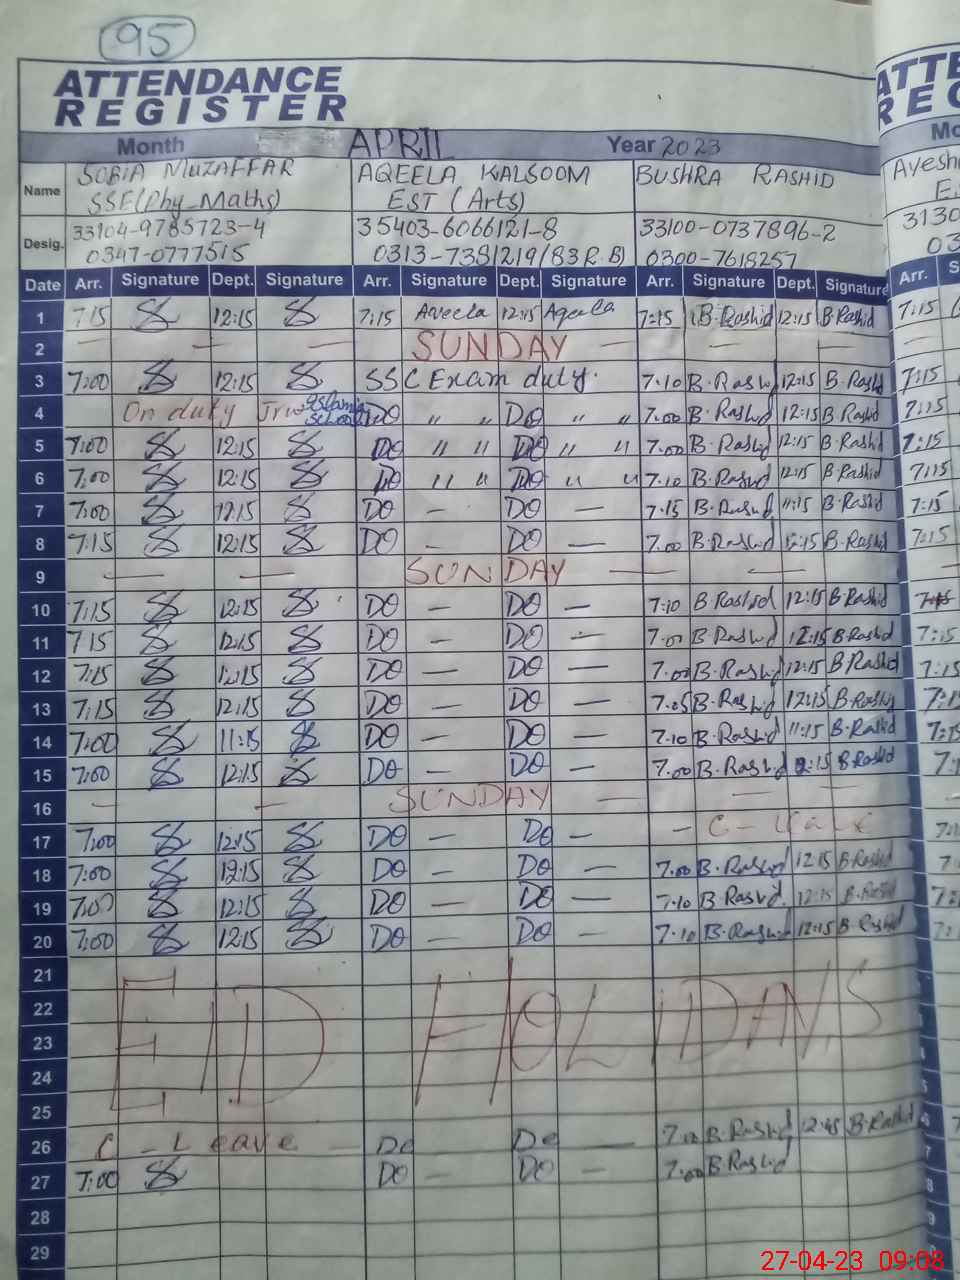 95
ATTENDANCE
REGISTER
Month APRIL Year 2023
Name SOBIA MUZAFFAR AQEELA KALSOOM BUSHRA RASHID
SSE(Phy_Maths) EST (Arts)
Desig. 33104-9785723-4 35403-6066121-8 33100-0737896-2
0347-0777515 0313-7381219/(83R.B) 0300-7618257
Date Arr. Signature Dept. Signature Arr. Signature Dept. Signature Arr. Signature Dept. Signature
1 7:15 12:15 7:15 Aqeela 12:15 Aqeela 7:15 B.Rashid 12:15 B.Rashid
2 — — — SUNDAY — — —
3 7:00 12:15 SSC Exam duty. 7.10 B.Rashid 12:15 B.Rashid
4 On duty Islamia School DO " " DO " " 7.00 B.Rashid 12:15 B.Rashid
5 7:00 12:15 DO " " DO " " 7.00 B.Rashid 12:15 B.Rashid
6 7:00 12:15 DO " " DO " " 7.10 B.Rashid 12:15 B.Rashid
7 7:00 12:15 DO — DO — 7.15 B.Rashid 11:15 B.Rashid
8 7:15 12:15 DO — DO — 7.00 B.Rashid 12:15 B.Rashid
9 — — SUNDAY — — —
10 7:15 12:15 DO — DO — 7:10 B Rashid 12:15 B Rashid
11 7:15 12:15 DO — DO — 7.00 B.Rashid 12:15 B.Rashid
12 7:15 12:15 DO — DO — 7.00 B.Rashid 12:15 B.Rashid
13 7:15 12:15 DO — DO — 7.05 B.Rashid 12:15 B.Rashid
14 7:00 11:15 DO — DO — 7.10 B.Rashid 11:15 B.Rashid
15 7:00 12:15 DO — DO — 7.00 B.Rashid 12:15 B.Rashid
16 — — SUNDAY — — —
17 7:00 12:15 DO — DO — — C- leave
18 7:00 12:15 DO — DO — 7.00 B.Rashid 12:15 B.Rashid
19 7:00 12:15 DO — DO — 7.10 B.Rashid 12:15 B.Rashid
20 7:00 12:15 DO — DO — 7.10 B.Rashid 12:15 B.Rashid
21
22 EID HOLIDAYS
23
24
25
26 C - Leave — DO DO — B.Rashid 12:45 B.Rashid
27 7:00 DO DO — 7.00 B.Rashid
28
29
ATTE
REG
Mo
Ayesh
E
3130
03
Arr. S
7:15
7:15
7:15
7:15
7:15
7:15
7:15
7:15
7:15
7:15
27-04-23 09:08